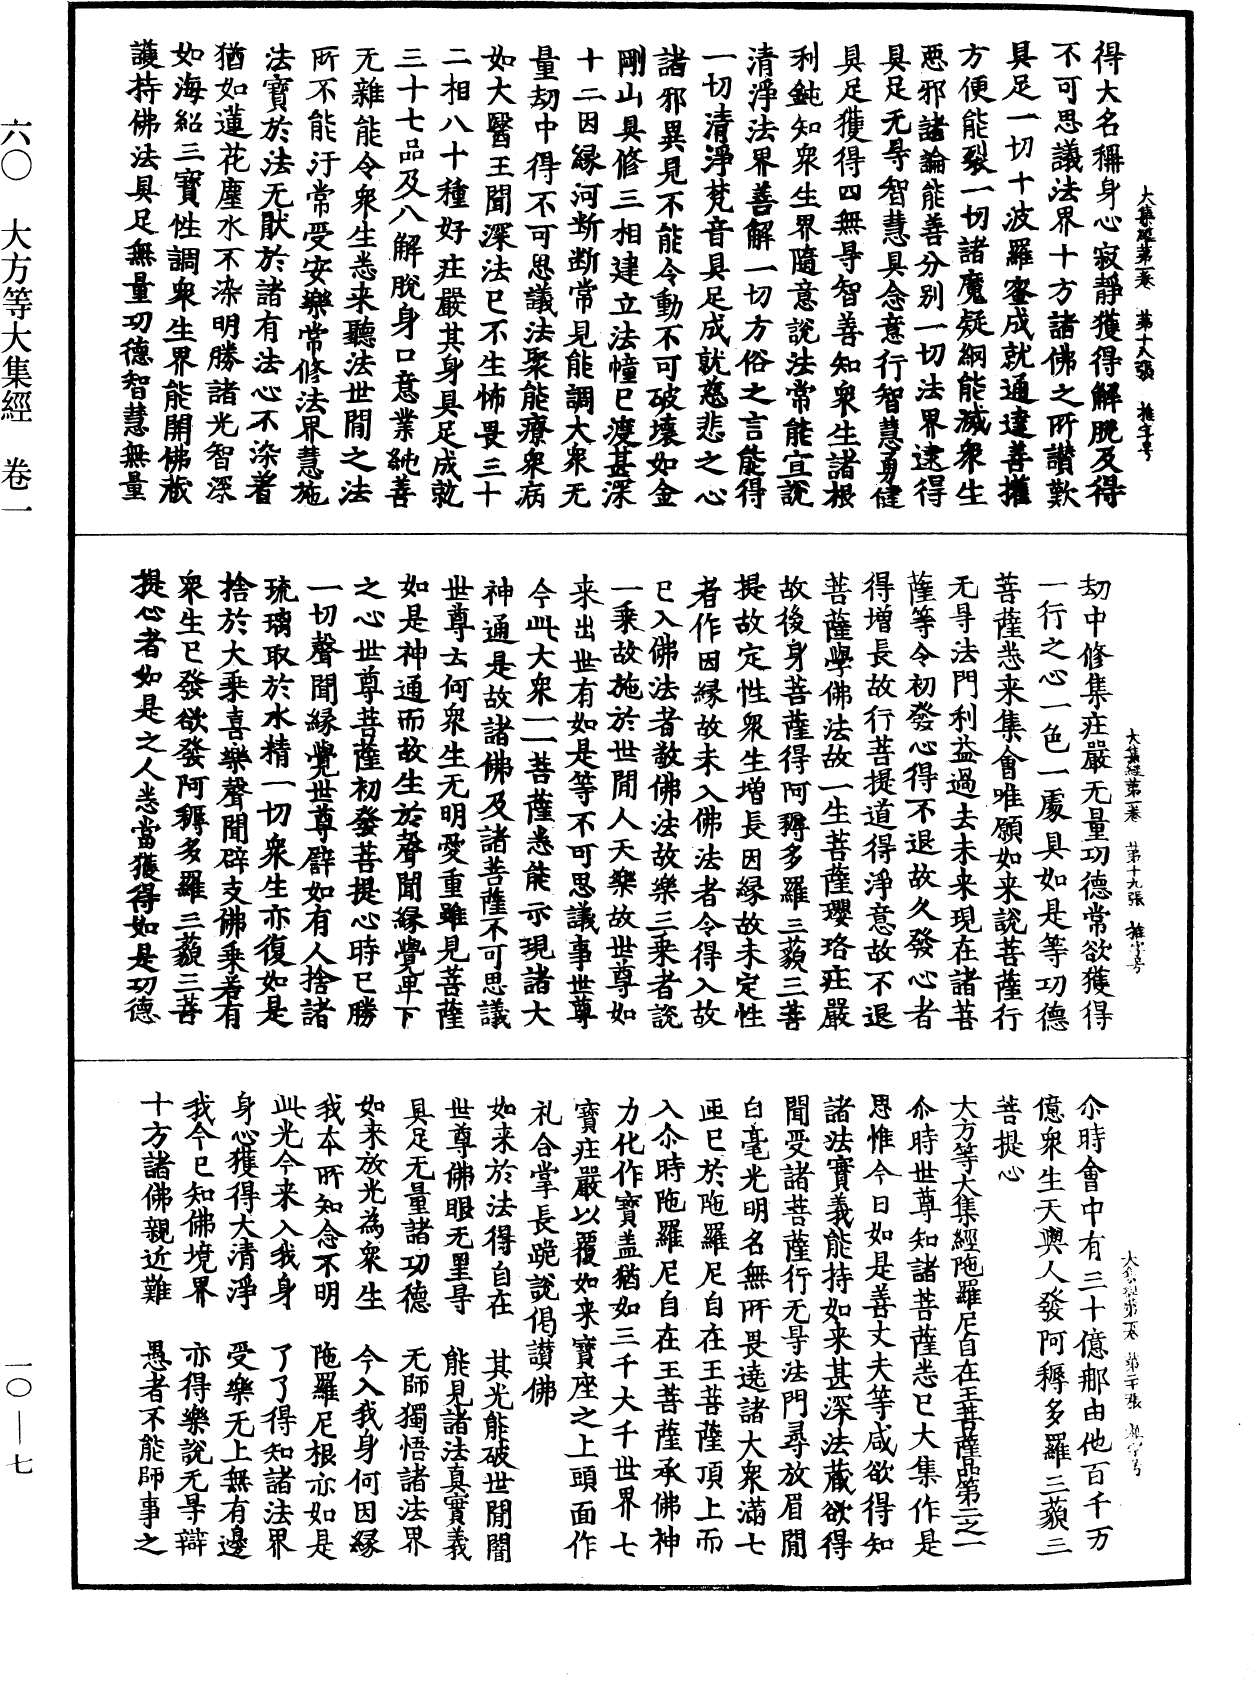 六〇 大方等大集經 卷一
大集經第一卷 第十八張 推字号
得大名稱身心寂靜獲得解脫及得
不可思議法界十方諸佛之所讃歎
具足一切十波羅蜜成就通達善權
方便能裂一切諸魔疑網能滅衆生
惡邪諸論能善分别一切法界逮得
具足无㝵智慧具念意行智慧勇健
具足獲得四無㝵智善知衆生諸根
利鈍知衆生界隨意說法常能宣說
清淨法界善解一切方俗之言能得
一切清淨梵音具足成就慈悲之心
諸邪異見不能令動不可破壞如金
剛山具修三相建立法幢已渡甚深
十二因縁河断断常見能調大衆无
量劫中得不可思議法聚能療衆病
如大醫王聞深法已不生怖畏三十
二相八十種好莊嚴其身具足成就
三十七品及八解脫身口意業純善
无雜能令衆生悉来聽法世間之法
所不能汙常受安樂常修法界慧施
法寶於法无猒於諸有法心不染著
猶如蓮花塵水不染明勝諸光智深
如海紹三寶性調衆生界能開佛蔵
護持佛法具足無量功德智慧無量
大集經第一卷 第十九張 推字号
劫中修集莊嚴无量功德常欲獲得
一行之心一色一處具如是等功德
菩薩悉来集會唯願如来說菩薩行
无㝵法門利益過去未来現在諸菩
薩等令初發心得不退故久發心者
得增長故行菩提道得淨意故不退
菩薩學佛法故一生菩薩瓔珞莊嚴
故後身菩薩得阿耨多羅三藐三菩
提故定性衆生增長因縁故未定性
者作因縁故未入佛法者令得入故
已入佛法者敎佛法故樂三乘者說
一乘故施於世間人天樂故世尊如
来出世有如是等不可思議事世尊
今此大衆一一菩薩悉能示現諸大
神通是故諸佛及諸菩薩不可思議
世尊云何衆生无明愛重雖見菩薩
如是神通而故生於聲聞縁覺卑下
之心世尊菩薩初發菩提心時已勝
一切聲聞縁覺世尊譬如有人捨諸
琉璃取於水精一切衆生亦復如是
捨於大乘喜樂聲聞辟支佛乘若有
衆生已發欲發阿耨多羅三藐三菩
提心者如是之人悉當獲得如是功德
大集經第一卷 第二十張 推字号
尒時會中有三十億那由他百千万
億衆生天與人發阿耨多羅三藐三
菩提心
大方等大集經陁羅尼自在王菩薩品第二之一
尒時世尊知諸菩薩悉已大集作是
思惟今日如是善丈夫等咸欲得知
諸法實義能持如来甚深法蔵欲得
聞受諸菩薩行无㝵法門尋放眉間
白毫光明名無所畏遶諸大衆滿七
匝已於陁羅尼自在王菩薩頂上而
入尒時陁羅尼自在王菩薩承佛神
力化作寶盖猶如三千大千世界七
寶莊嚴以覆如来寶座之上頭面作
礼合掌長跪說偈讃佛
如来於法得自在 其光能破世間闇
世尊佛眼无罣㝵 能見諸法真實義
具足无量諸功德 无師獨悟諸法界
如来放光為衆生 今入我身何因縁
我本所知念不明 陁羅尼根亦如是
此光今来入我身 了了得知諸法界
身心獲得大清淨 受樂无上無有邊
我今已知佛境界 亦得樂說无㝵辯
十方諸佛親近難 愚者不能師事之
一〇—七